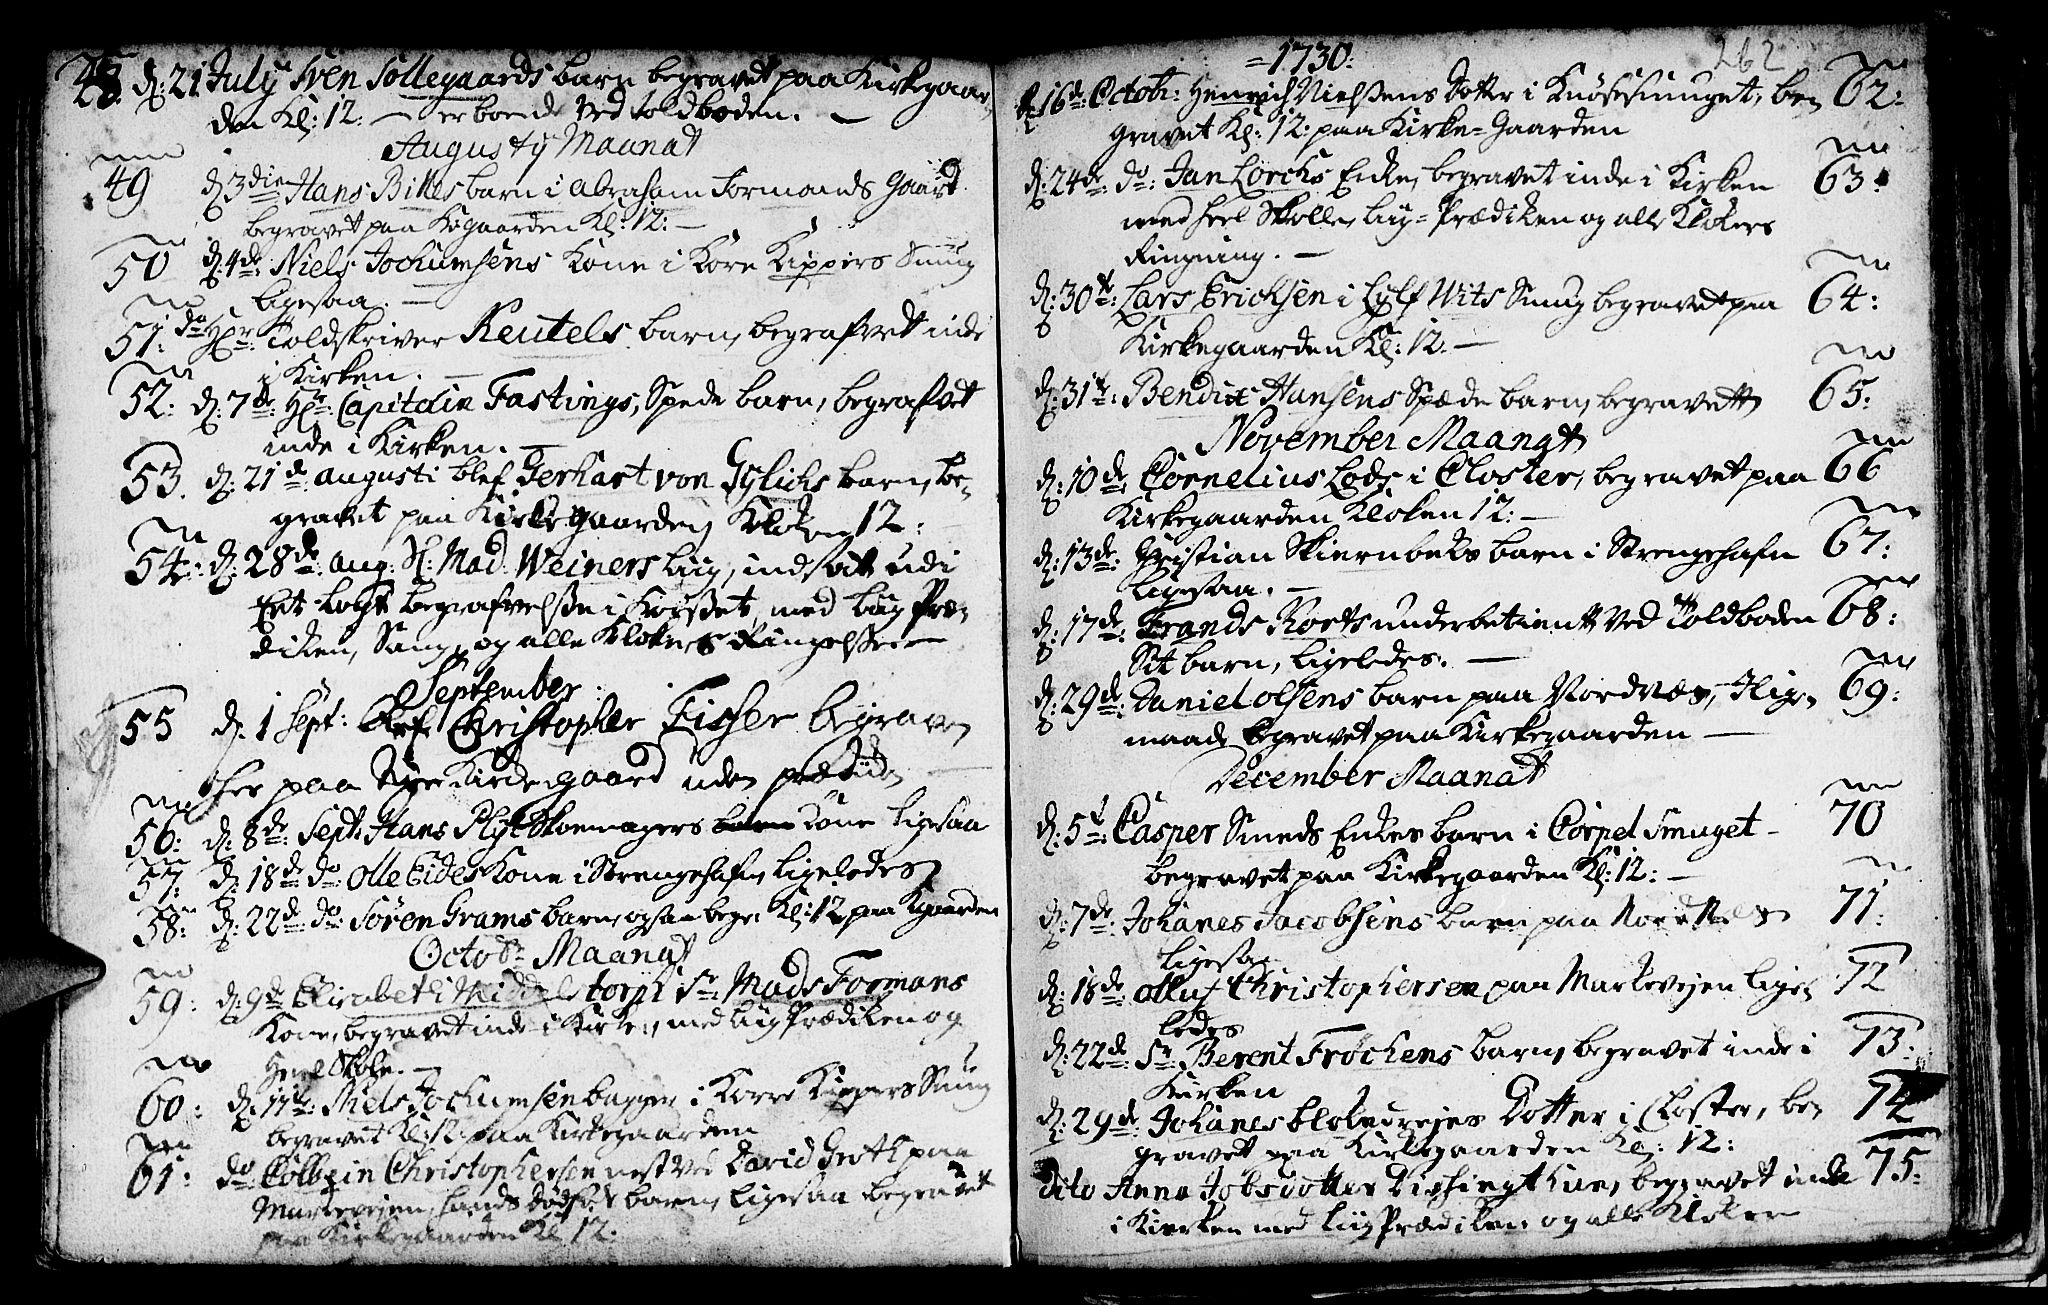 48. d: 21 July Sven Sollegaards barn begravet paa Kirkegaar
den Kl: 12. — er boende ved toldboden. —
Augusty Maanat
49 d 3die Hans Bittes barn i Abraham Formands Gaard
begravet paa K:gaarden Kl: 12: —
50 d: 4de: Niels Jochumsens Kone i Kore Kippers Smug
Ligesaa. —
51: do Hr: Toldskriver Reutels barn, begrafvet inde
i Kirken. —
52: d: 7de: Hr: Capitain Fastings, Spede barn, begrafvet
inde i Kirken. —
53. d: 21de augusti blef Gerhart von Gylichs barn, be-
gravet paa Kirkegaarden Kloken 12:
54: d: 28de: aug: Sl: Mad: Weiners Liig, indsat udi
Et begrafvelsse i med Liig Præ-
diken, Sang, og alle Klokers Ringelsser
September:
55 d. 1 Sept: blef Christopher Fisser begraven
her paa Kirkegaard uden
56: d: 8de: Sept: Hans Plyt Skoemagers Kone Ligesaa
57: d: 18de do: Olle Eides Kone i Strengehafn, Ligeledes
58: d: 22de do: Søren Grams barn, ogsaa begr: Kl: 12 paa Kgaarden
Octob: Maanat
59: d: 9de Elisabeth Middelstorph Sr: Mads Formans
Kone, begravet inde i Kirken, med Liig Prædiken og
Heel Skole. —
60: d. 11te: Niels Jochumsen bagger i Korre Kippers Smug
begravet Kl: 12: paa Kirkegaarden
61: do Colbein Christophersen nest ved David Groth paa
Markeveyen, hands dødfød barn, Ligesaa begravet
paa Kirkegaarden Kl 12:
=1730: 262
d 16de: Octob: Henrich Nielsens Dotter i Knøsesmuget, be- 62:
gravet Kl: 12: paa Kirke=Gaarden
d: 24de: do: Jan Lorchs Enke, begravet inde i Kirken 63:
med heel Skolle, Liig=Prædiken og alle Klokers
Ringning. —
d: 30te: Lars Erichsen i Cylf Wits Smug begravet paa 64:
Kirkegaarden Kl: 12. —
d: 31te: Bendix Hansens Spæde barn, begravett 65:
November Maanat
d: 10de: Cornelius Lods i Closter, begravet paa 66
Kirkegaarden Kloken 12: —
d: 13de: Christian Skiernbeks barn i Strengehafn 67:
Ligesaa. —
d: 17de: Brands Korts underbetient ved Toldboden 68:
Sit barn, Ligeledes. —
d: 29de: Daniel Olsens barn paa Nordnæs, Lige- 69:
maade begravet paa Kirkegaarden —
December Maanat
d: 5te: Casper Smeds Enkes barn i Corpel Smuget - 70
begravet paa Kirkegaarden Kl: 12: —
d: 7de: Johanes Jacobsens barn paa Nordnæs 71:
Ligesaa
d: 18de: Olluf Christophersen paa Markevejen Lige- 72
ledes
d: 22de Sr: Berent Frøchens barn, begravet inde i 73:
Kirken
d: 29de: Johanes Dotter i Closter, be- 74
gravet paa Kirkegaarden Kl: 12:
dito Anna Jobsdotter begravet inde 75:
i Kierken med Liig Prædiken og alle Kloker